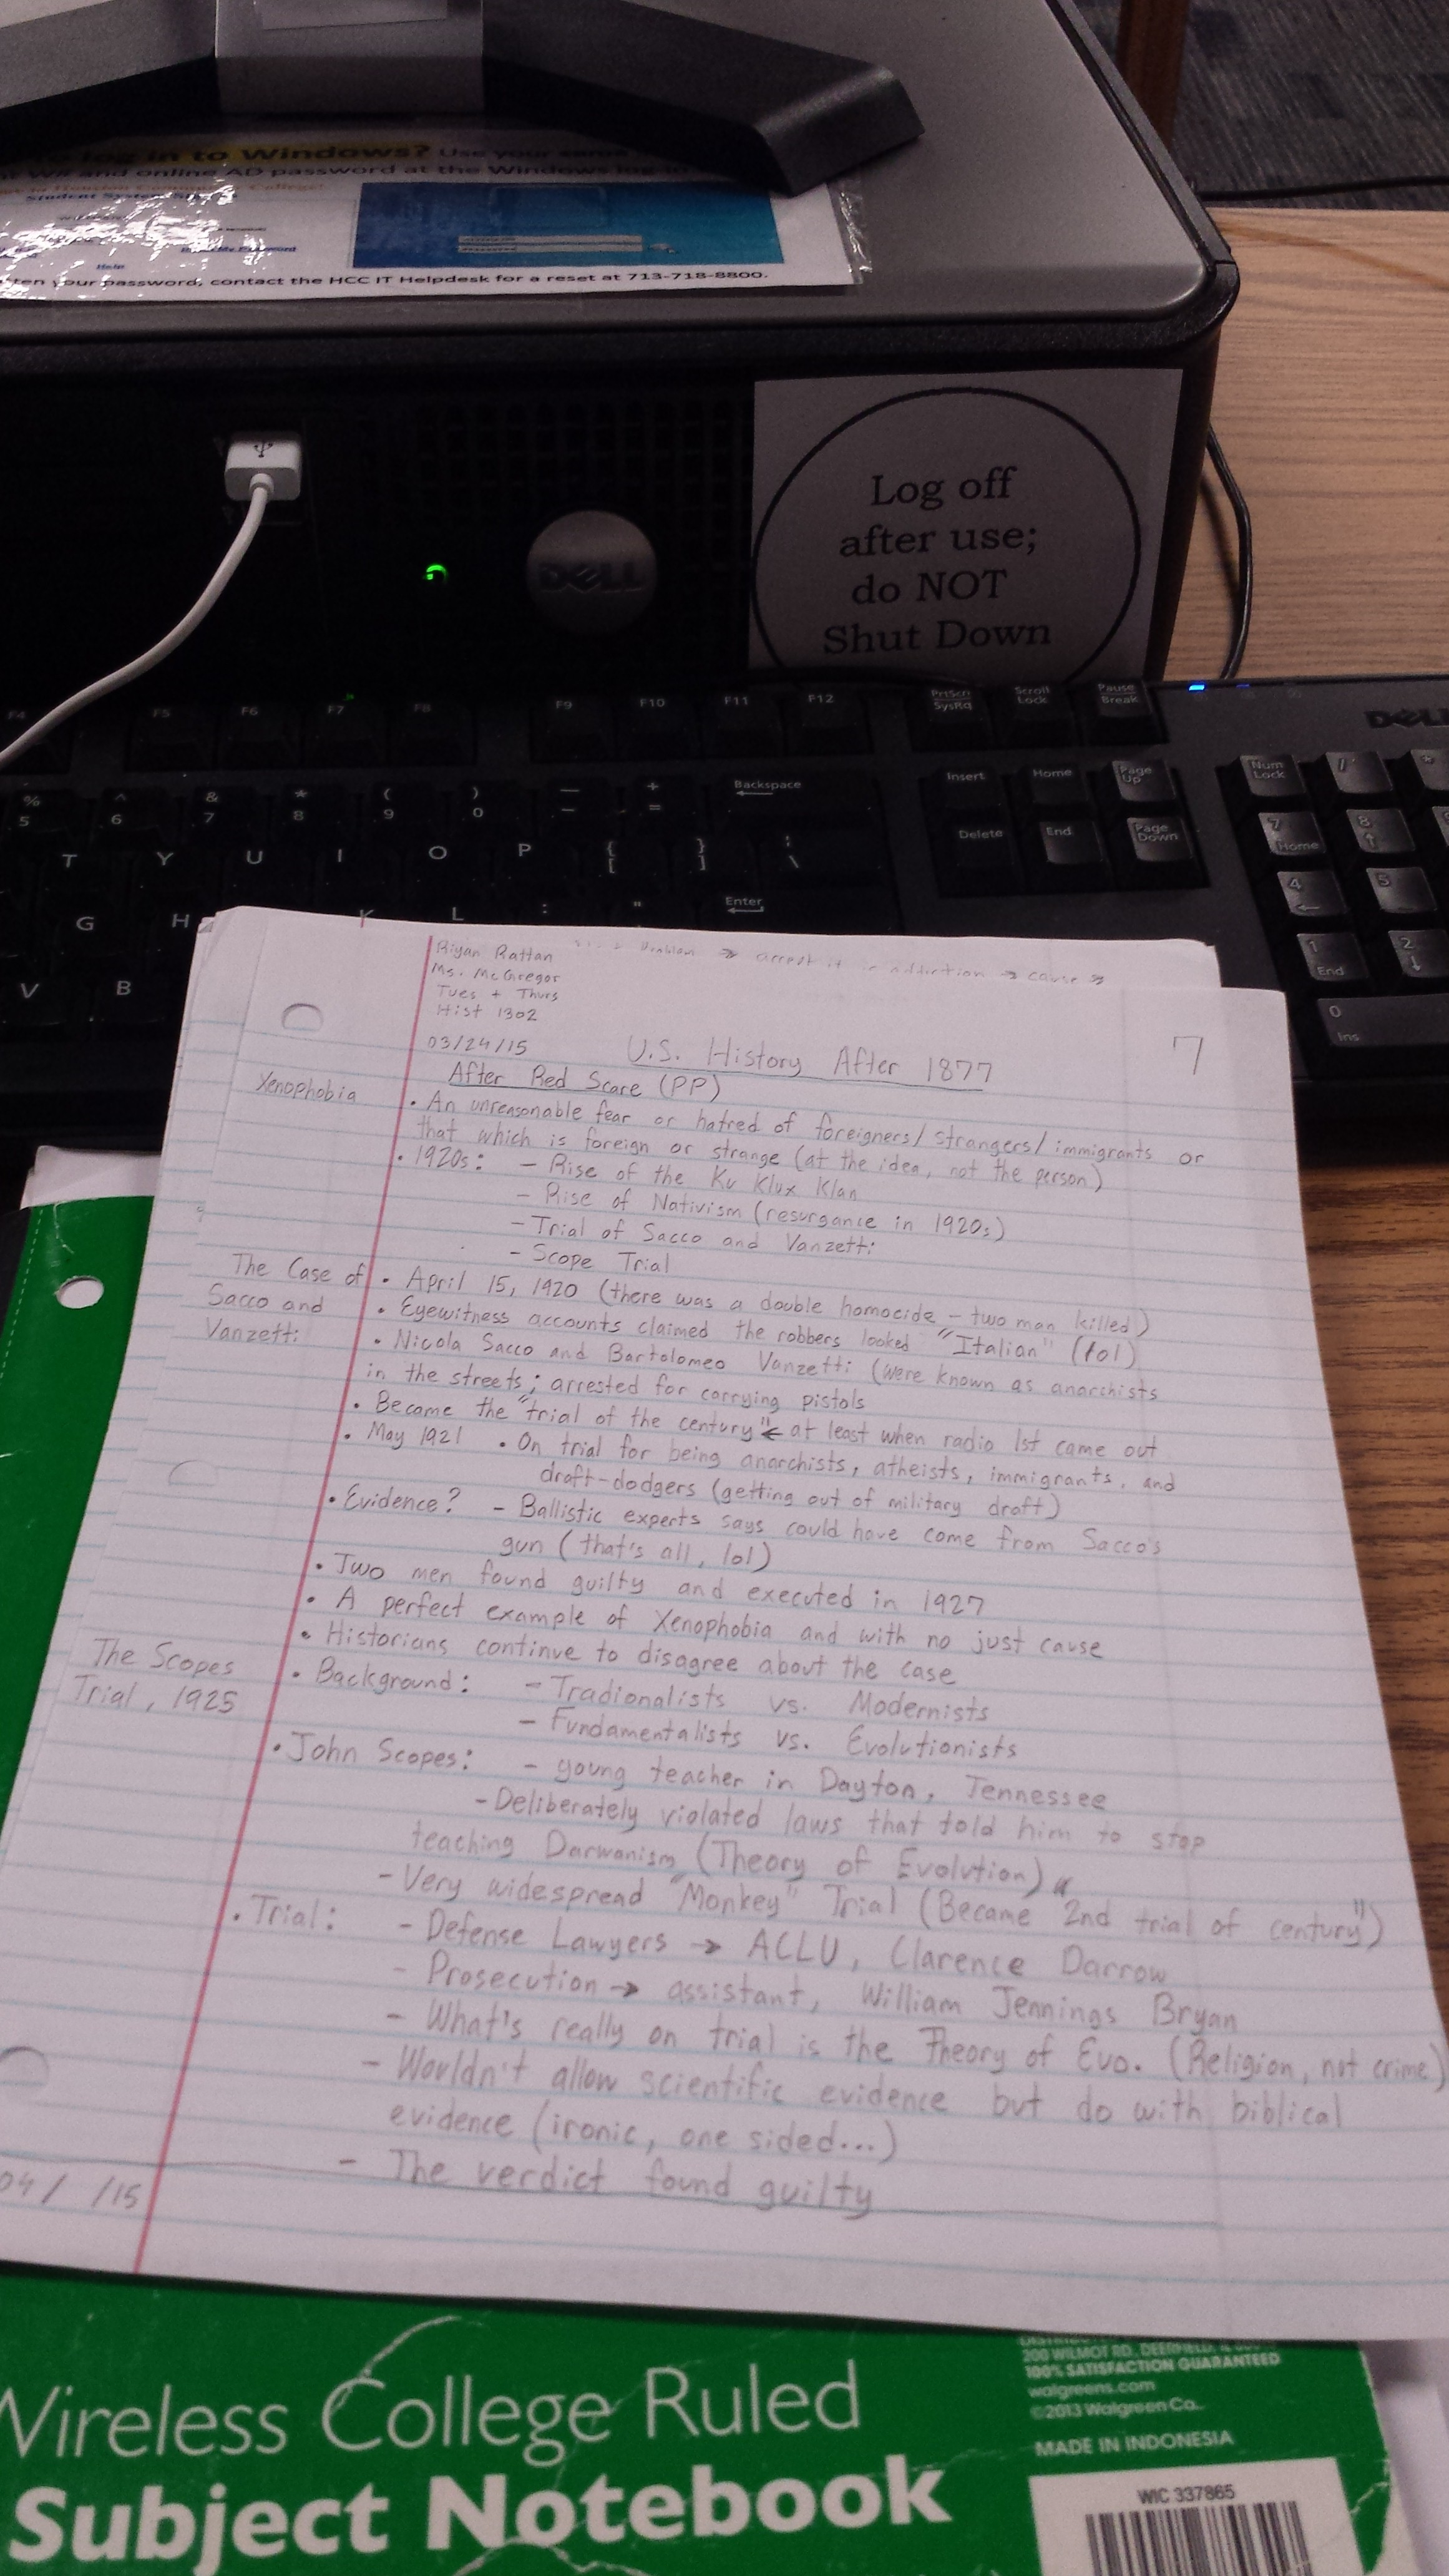 log in to Windows? Use your
and online AD password at the Windows log
Student System
Help
ten your password, contact the HCC IT Helpdesk for a reset at 713-718-8800.
DELL
Log off
after use;
do NOT
Shut Down
F4 F5 F6 F7 F8 F9 F10 F11 F12 PrtScn SysRq Scroll Lock Pause Break
DELL
% 5 ^ 6 & 7 * 8 ( 9 ) 0 — - + = Backspace Insert Home Page Up Num Lock / *
T Y U I O P { [ } ] | \ Delete End Page Down 7 Home 8
G H K L : " Enter 4 5
V B 1 End 2
0 Ins
Problem → accept it → cause
Riyan Rattan
Ms. McGregor
Tues + Thurs
Hist 1302
03/24/15 U.S. History After 1877 7
After Red Scare (PP)
Xenophobia • An unreasonable fear or hatred of foreigners/strangers/immigrants or
that which is foreign or strange (at the idea, not the person)
• 1920s: - Rise of the Ku Klux Klan
- Rise of Nativism (resurgance in 1920s)
- Trial of Sacco and Vanzetti
- Scope Trial
The Case of • April 15, 1920 (there was a double homocide - two man killed)
Sacco and • Eyewitness accounts claimed the robbers looked "Italian" (lol)
Vanzetti • Nicola Sacco and Bartolomeo Vanzetti (were known as anarchists
in the streets; arrested for carrying pistols
• Became the "trial of the century" ← at least when radio 1st came out
• May 1921 • On trial for being anarchists, atheists, immigrants, and
draft-dodgers (getting out of military draft)
• Evidence? - Ballistic experts says could have come from Sacco's
gun (that's all, lol)
• Two men found guilty and executed in 1927
• A perfect example of Xenophobia and with no just cause
• Historians continue to disagree about the case
The Scopes • Background: - Tradionalists vs. Modernists
Trial, 1925 - Fundamentalists vs. Evolutionists
• John Scopes: - young teacher in Dayton, Tennessee
- Deliberately violated laws that told him to stop
teaching Darwanism (Theory of Evolution)
- Very widespread "Monkey" Trial (Became 2nd "trial of century")
• Trial: - Defense Lawyers → ACLU, Clarence Darrow
- Prosecution → assistant, William Jennings Bryan
- What's really on trial is the Theory of Evo. (Religion, not crime)
- Wouldn't allow scientific evidence but do with biblical
evidence (ironic, one sided...)
- The verdict found guilty
04/ /15
Wireless College Ruled
Subject Notebook
200 WILMOT RD., DEERFIELD, IL
100% SATISFACTION GUARANTEED
walgreens.com
©2013 Walgreen Co.
MADE IN INDONESIA
WIC 337865